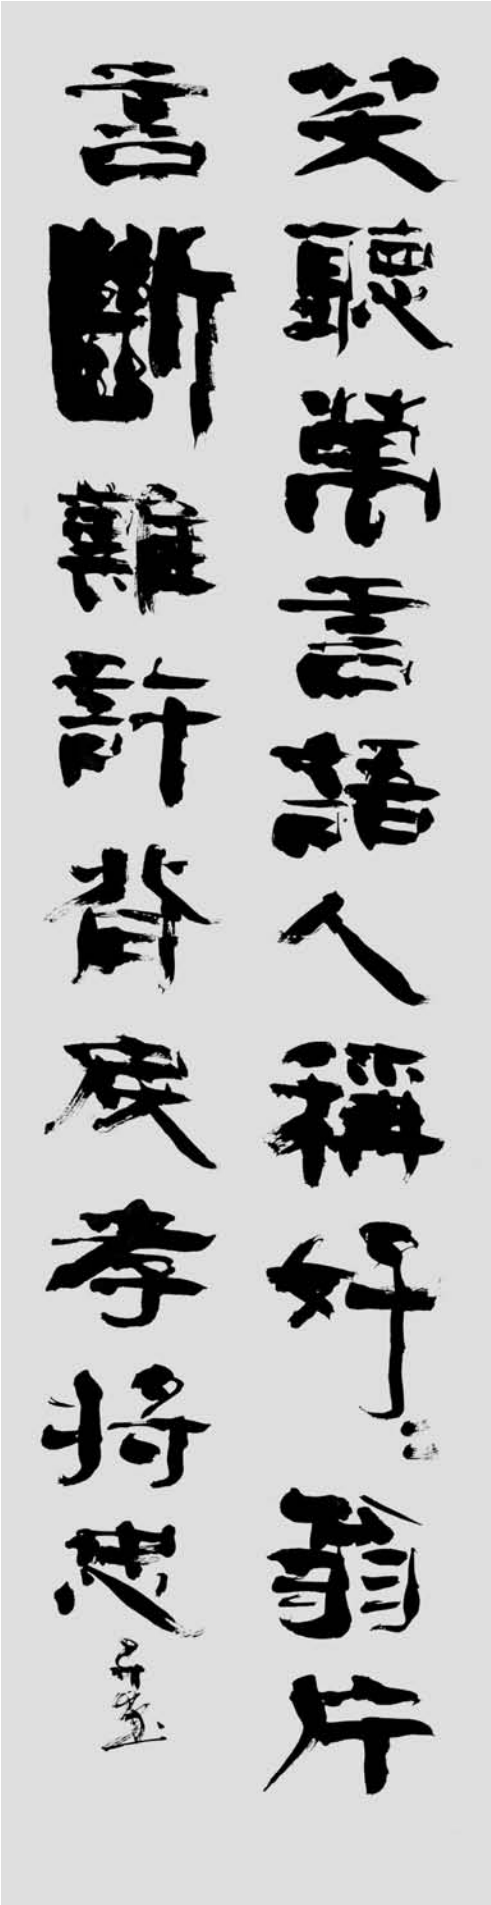 笑聽萬言語人稱好〻翁片
言斷難許背戾孝將忠